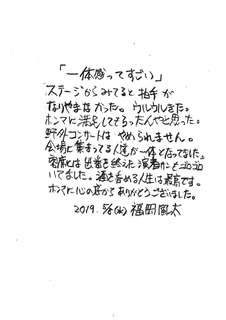 「一体感ってすごい」
ステージからみてると拍手が
なりやまなかった。ウルウルきた。
ホンマに満足してもらったんやと思った。
野外コンサートは やめられません。
会場に集まってる人達が一体となってました。
客席には出番を終えた演者サンもゴロゴロ
いてました。酒を呑める人生は最高です。
ホンマに心の底からありがとうございました。
2019. 5/8(水) 福岡風太